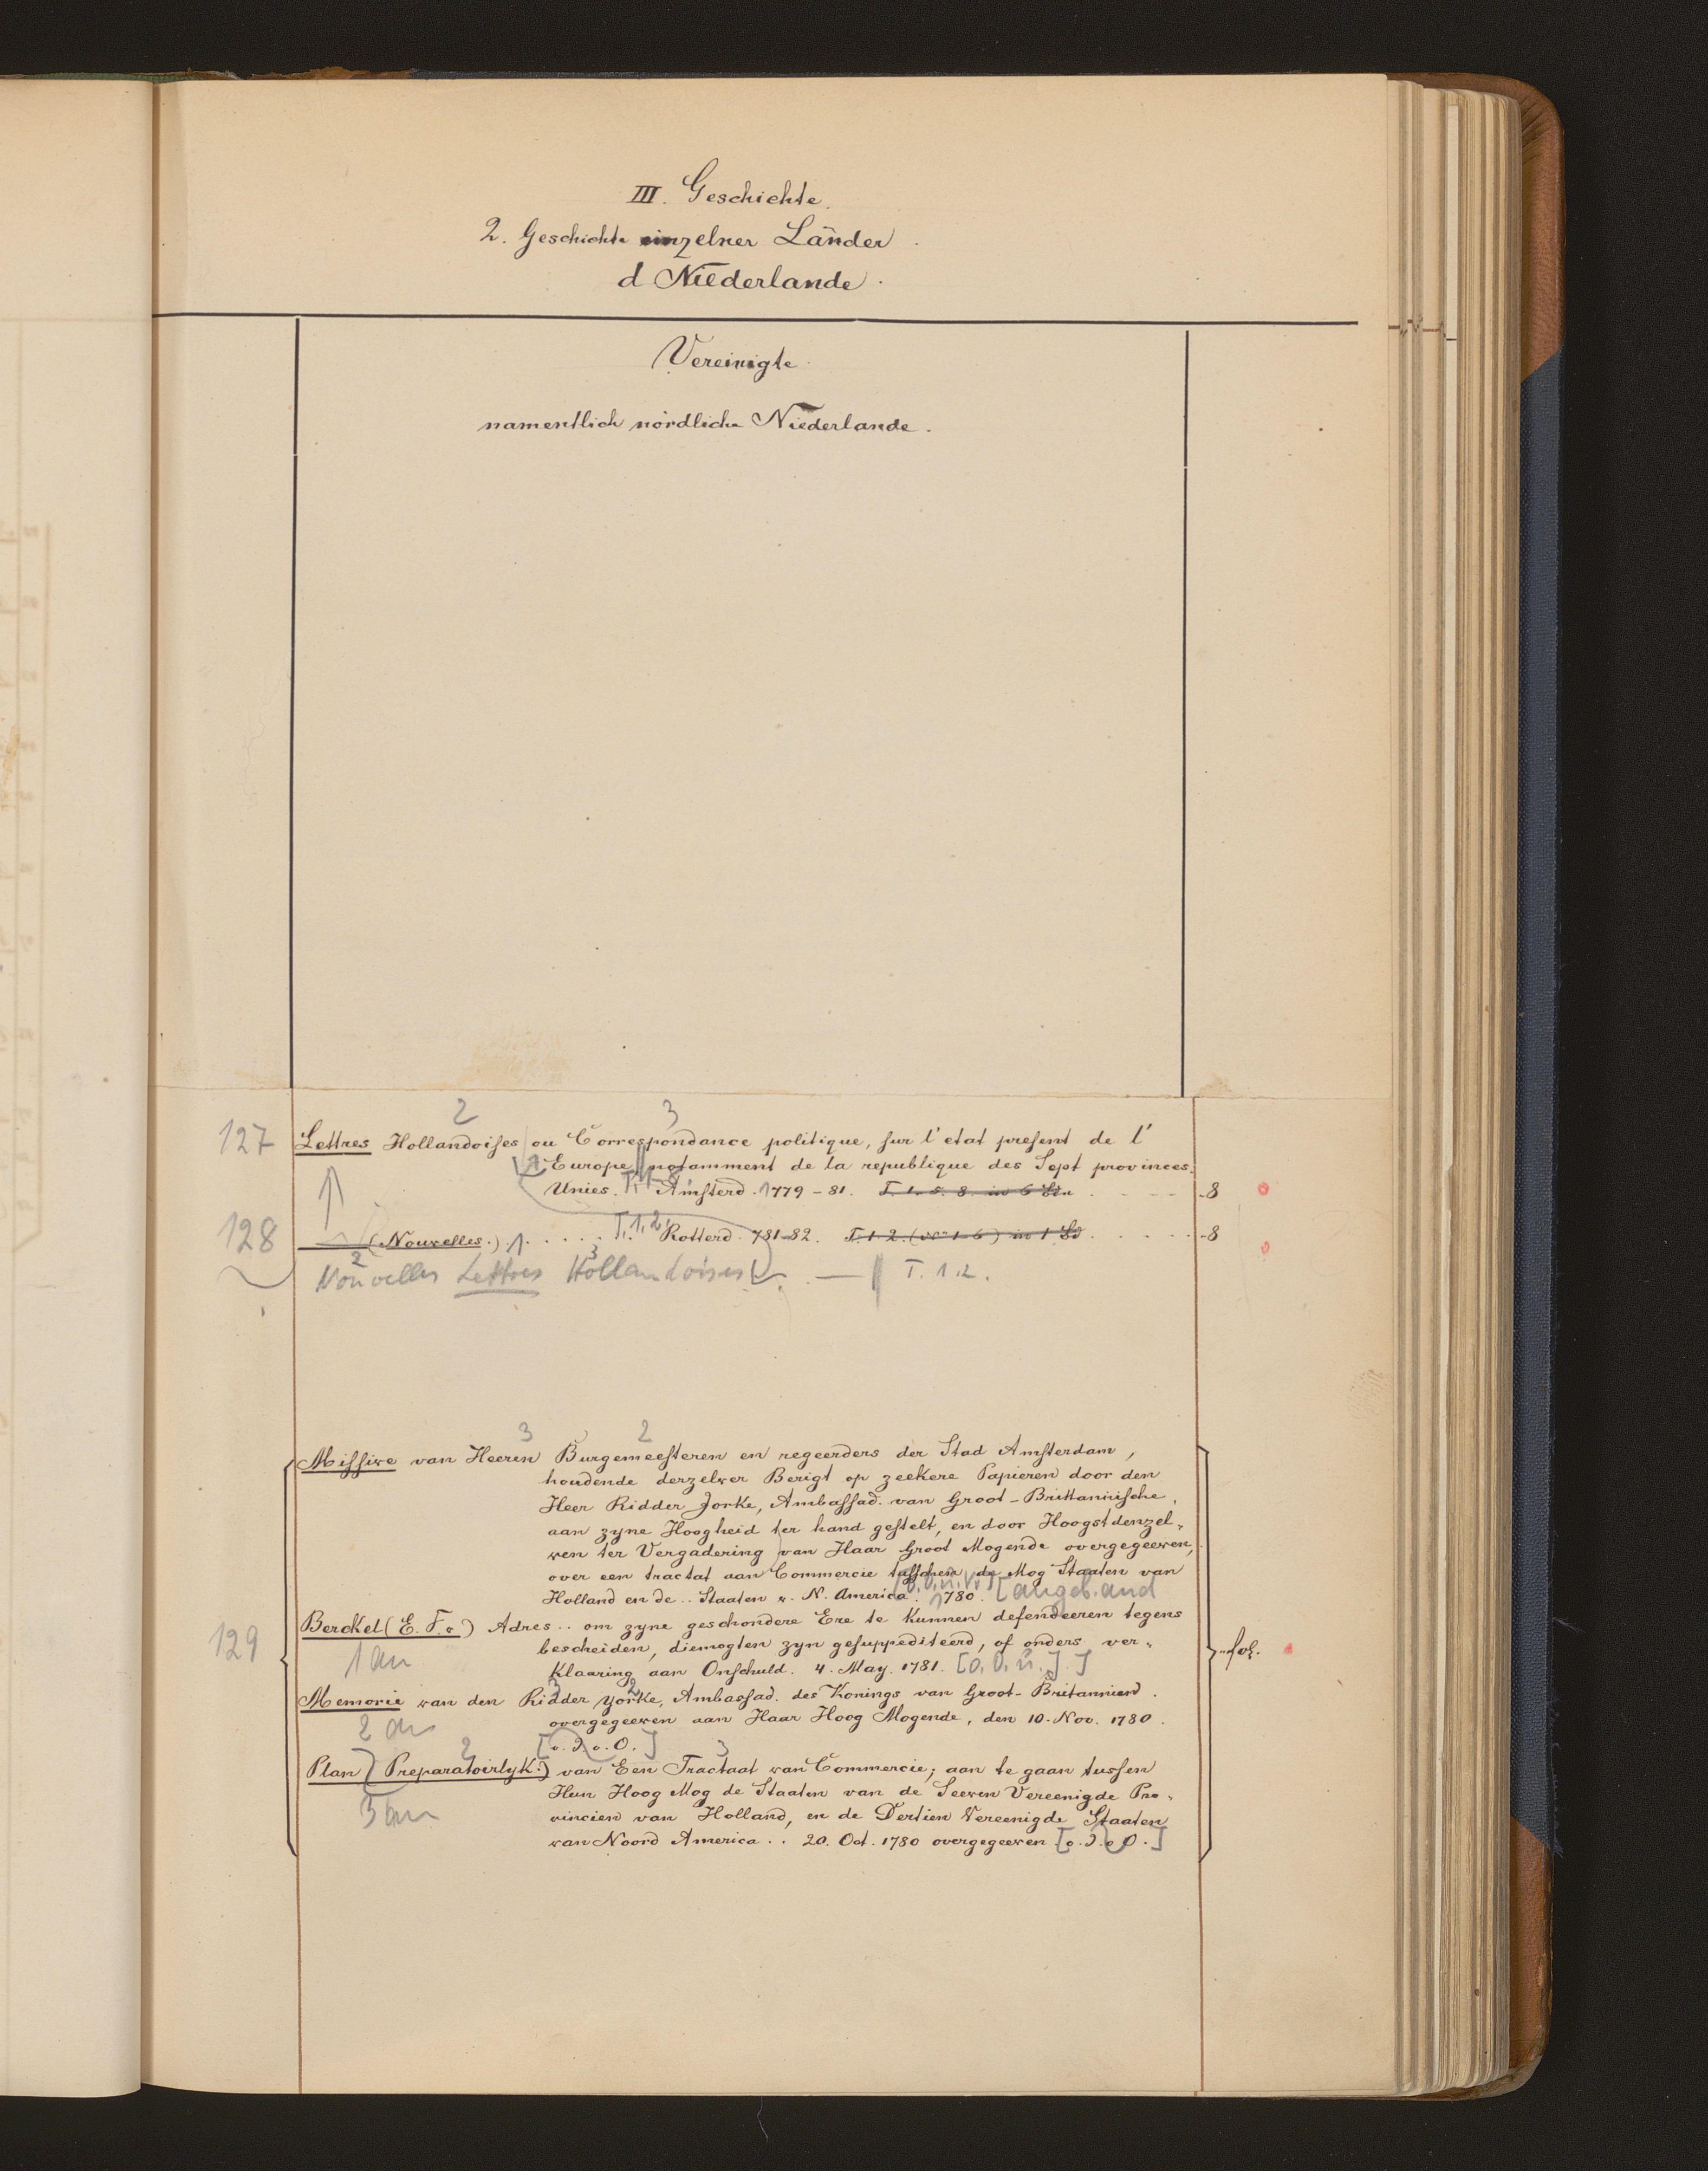 III. Geschichte.
2. Geschichte einzelner Länder.
d Niederlande.
Vereinigte
namentlich nördliche Niederlande.
2 3
127 Lettres Hollandoises ou Correspondance politique, sur l'etat present de l'
Europe, notamment de la republique des Sept provinces
Unies. T. 1-8. Amsterd. 1779-81. T. 1. 5. 8. in 6 Bdn - 8
128 (Nouvelles.) 1. T. 1. 2. Rotterd. 781-82. T. 1-2. (No 1-6) in 1 Bd - 8
2 3
Nouvelles Lettres Hollandoises . - || T. 1.2.
3 2
Missive van Heeren Burgemeesteren en regeerders der Stad Amsterdam,
houdende derzelver Berigt op zeekere Papieren door den
Heer Ridder Jorke, Ambassad. van Groot-Brittannische,
aan zyne Hoogheid ter hand gestelt, en door Hoogstdenzel-
ven ter Vergadering van Haar Groot Mogende overgegeeven,
over een tractat aan Commercie tusschen de Mog Staaten van
Holland en de .. Staaten v. N. America. 1780. [angeb. and
129 Berckel (E. F. v.) Adres .. om zyne geschondere Ere te Kunnen defendeeren tegens
bescheiden, diemogten zyn gesuppediteerd, of onders ver-
1 an
Klaaring aan Onschuld. 4. May. 1781. [O. O. u. J.]
fol.
3 2
Memorie van den Ridder Yorke, Ambassad. des Konings van Groot-Britannien.
overgegeeven aan Haar Hoog Mogende, den 10. Nov. 1780.
2 an
[o. J. o. O.]
2 3
Plan (Preparatoirlyk.) van Een Tractaat van Commercie; aan te gaan tussen
Hun Hoog Mog de Staaten van de Seeven Vereenigde Pro-
3 an
vincien van Holland, en de Dertien Vereenigde Staaten
van Noord America .. 20. Oct. 1780 overgegeeven [o. J. o. O.]